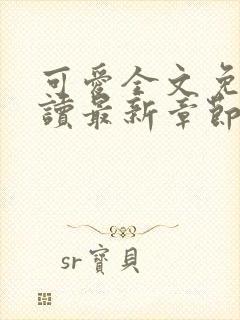 可愛全文免
讀最新章節
sr寶貝